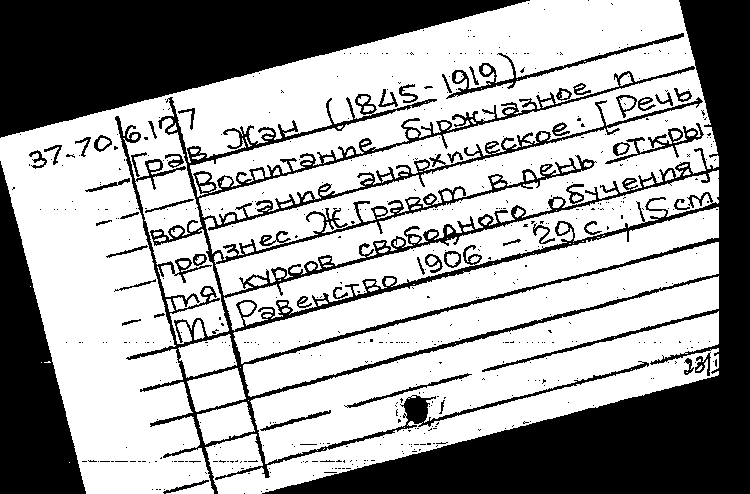 37-70.6.127
Грав, Жан (1845-1919).
Воспитание буржуазное и
воспитание анархическое: [Речь,
произнес. Ж.Гравот в день откры-
тия курсов свободного обучения].-
М.: Равенство, 1906. - 29 с.; 15 cm.